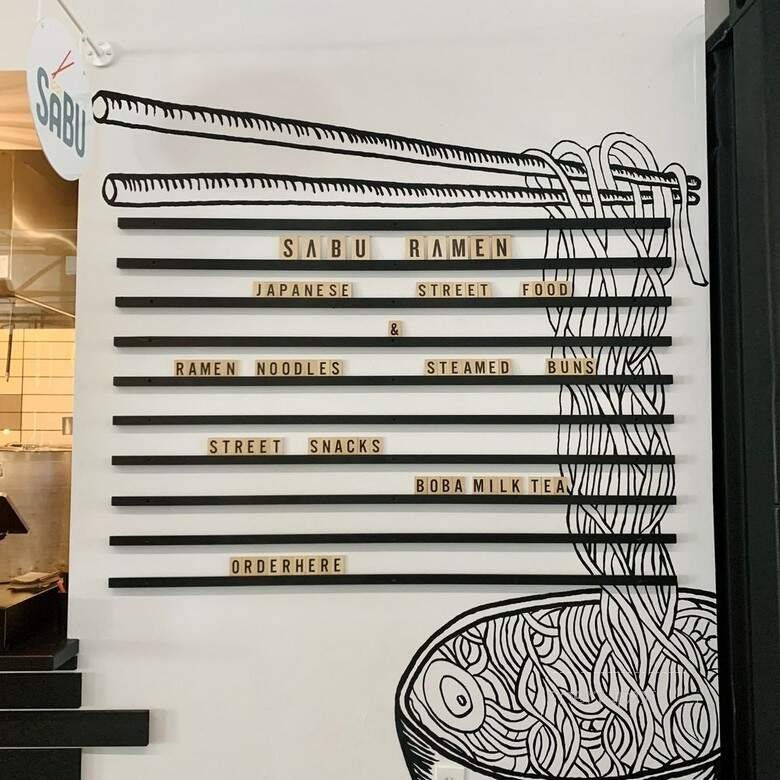 SABU
SABU RAMEN
JAPANESE STREET FOOD
&
RAMEN NOODLES STEAMED BUNS
STREET SNACKS
BOBA MILK TEA
ORDERHERE